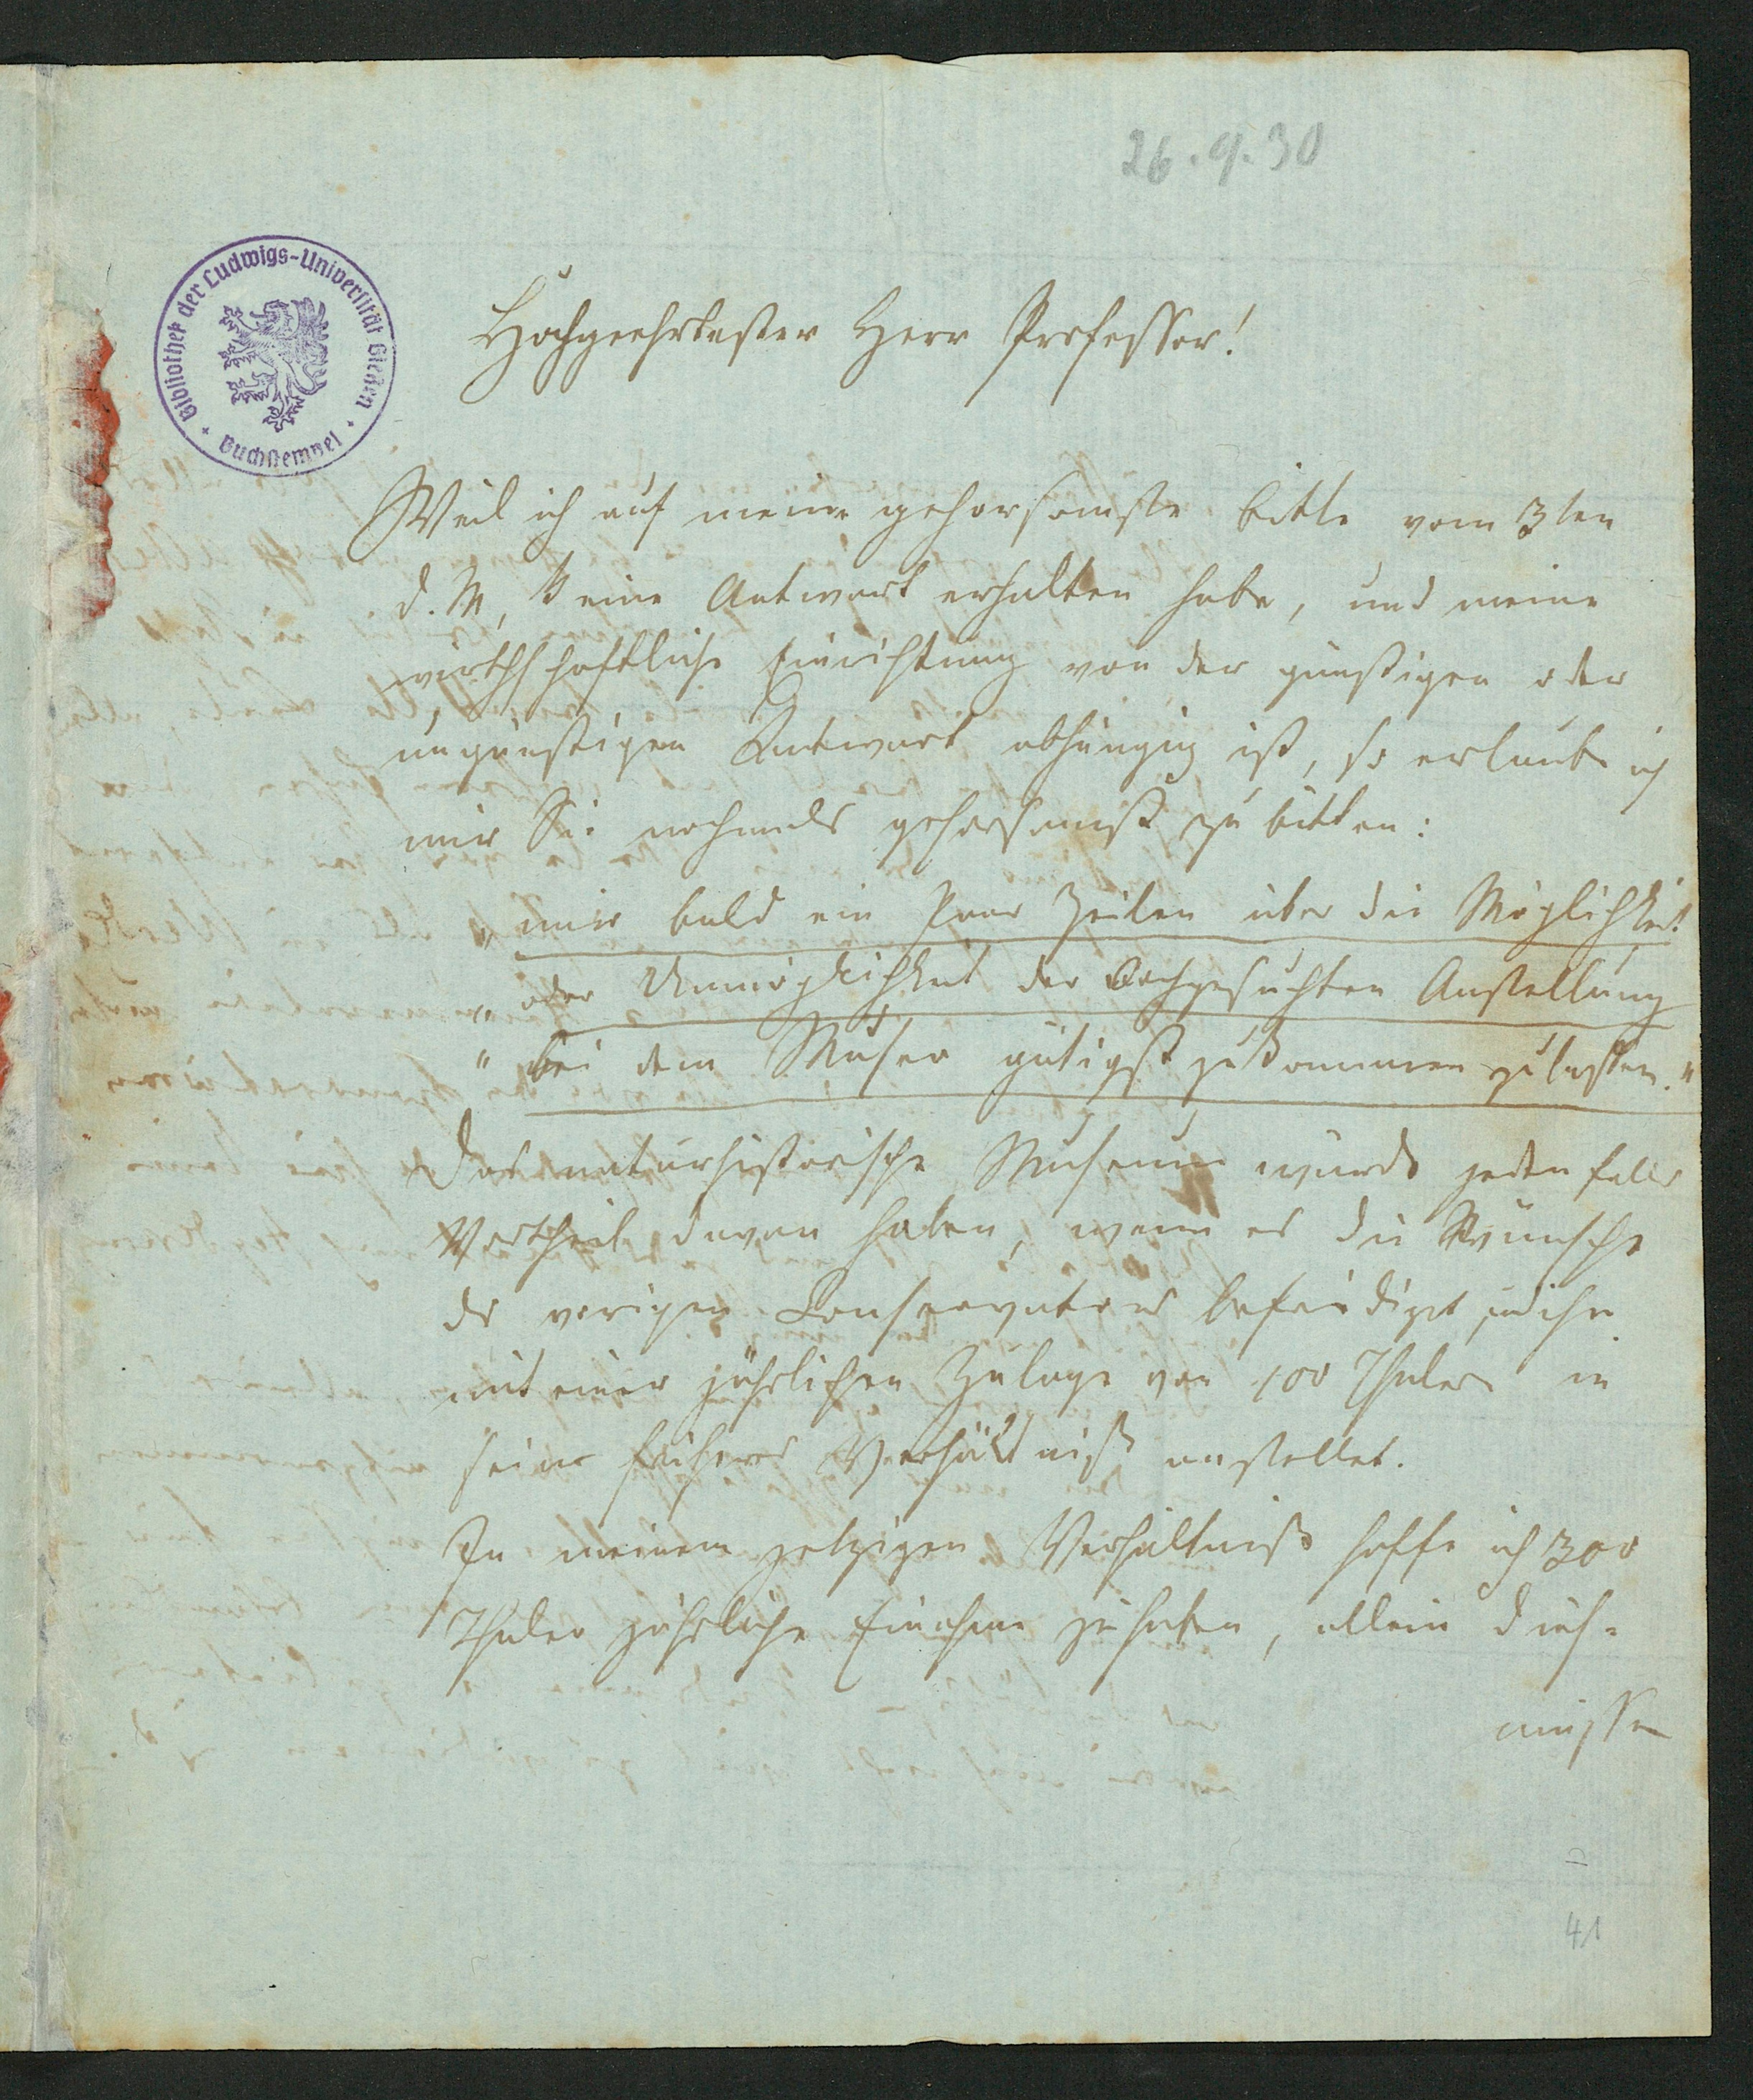 26.9.30
Bibliothek der Ludwigs-Universität Gießen
Buchstempel
Hochgeehrtester Herr Professor!
Weil ich auf meine gehorsamste bitte vom 3ten
d. M, keine Antwort erhalten habe, und meine
wirthschaftliche Einrichtung von der günstigen oder
ungünstigen Antwort abhängig ist, so erlaube ich
mir Sie nochmals gehorsamst zu bitten:
„ mir bald ein Paar Zeilen über die Möglichkeit
„ oder Unmöglichkeit der nachgesuchten Anstellung
" bei dem Museo gütigst zukommen zu lassen."
Das naturhistorische Museum würde jedenfalls
Vortheil davon haben, wenn es die Wünsche
des vorigen Conservators befriedigt, und ihn
mit einer jährlichen Zulage von 100 Thaler in
seine früheres Verhältniß anstellet.
In meinem jetzigen Verhältniß hoffe ich 300
Thaler jährliche Einahme zu haben, allein diese
müssen
41